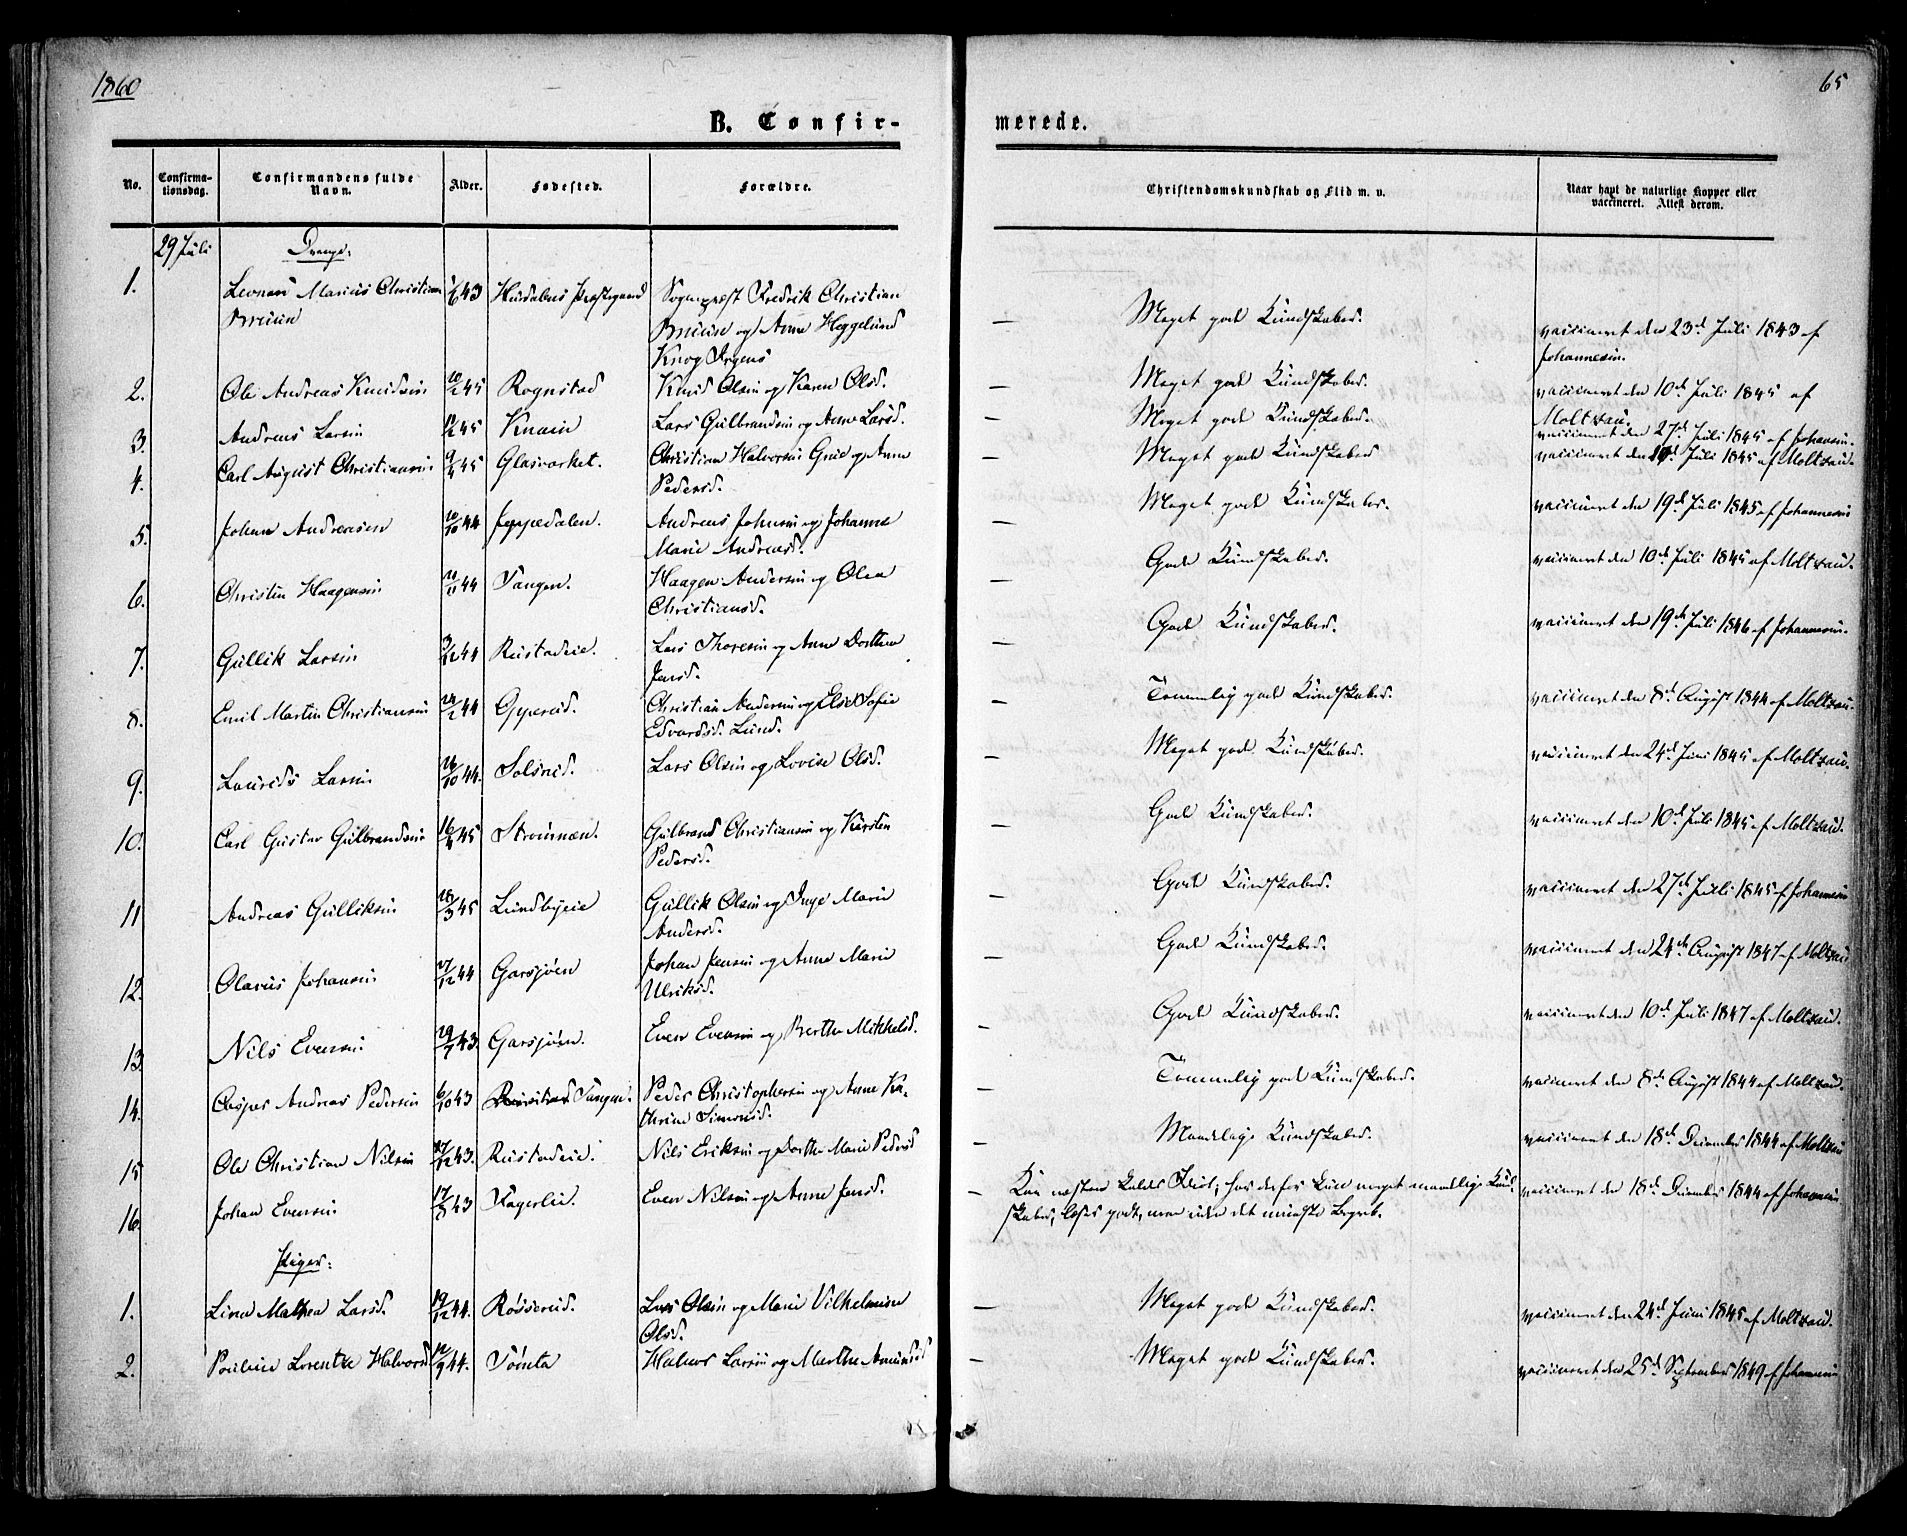 1860
65
B. Confir-
merede.
No.
Confirma-
tionsdag.
Confirmandens fulde
Navn.
Alder.
Fødested.
Forældre.
Christendomskundskab og Flid m. v.
Naar havt de naturlige Kopper eller
vaccineret. Attest derom.
29 Juli
Drenge:
1. Marius Christian 43 Hurdalens Præstegaard Sogneprest Fredrik Christian
og Anne Heggelund
Meget gode Kundskaber. vaccineret den 23d Juli 1843 af
Johannesen.
2. Ole Andreas Knudsen 45 Rognstad Knud Olsen og Karen Olsd. — Meget gode Kundskaber. vaccineret den 10de Juli 1845 af
Moltzau.
3. Andreas Larsen 45 Knain Lars Gulbrandsen og Anne Larsd. — Meget gode Kundskaber. vaccineret den 27de Juli 1845 af Johansen.
4. Carl August Christiansen 9/5 45 Glasværket. Christian Halvorsen og Anne
Pedersd.
— Meget gode Kundskaber vaccineret den Juli 1845 af Moltzau.
5. Johan Andreasen 20/10 44 Jeppedalen. Andreas Johnsen og Johanne
Marie Andreasd.
— Meget gode Kundskaber. vaccineret den 19de Juli 1845 af Johannesen
6. Christen Haagensen 21/11 44 Tangen. Haagen Andersen og Olea
Christiansd.
— Gode Kundskaber. vaccineret den 10de Juli 1845 af Moltzau.
7. Gullik Larsen 3/12 44 Rustadeie. Lars Thoresen og Anne Dorthea
Jensd.
— Gode Kundskaber. vaccineret den 19de Juli 1846 af Johannesen.
8. Emil Martin Christiansen 24/2 44 Oppereid. Christian Andersen og Else Sofie
Edvardsd. Lund.
— Temmelig gode Kundskaber. vaccineret den 8de August 1844 af Moltzau.
9. Laurids Larsen 26/10 44. Solsreid. Lars Olsen og Lovise Olsd.
— Meget gode Kundskaber. vaccineret den 24de Juni 1845 af Moltzau.
10. Carl Gustav Gulbrandsen 45 Strømnæn. Gulbrand Christiansen og Kirsten
Pedersd.
— Gode Kundskaber. vaccineret den 10de Juli 1845 af Moltzau.
11 Andreas Gulliksen 28/3 45 Lundbyeie Gullik Olsen og Inge Marie
Andersd.
— Gode Kundskaber. vaccineret den 27de Juli 1845 af Johannesen
12. Olavus Johansen 27/12 44 Garsjøen Johan Jensen og Anne Marie
Ulriksd.
— Gode Kundskaber. vaccineret den 24de August 1847 af Moltzau
13 Nils Evensen 29/7 43. Garsjøen. Even Evensen og Berthe Mikkelsd.
— Gode Kundskaber. vaccineret den 10de Juli 1847 af Moltzau.
14. Casper Andreas Pedersen 6/10 43 Tangen. Peder Christophersen og Anne Ka-
thrine Simensd.
— Temmelig gode Kundskaber. vaccineret den 8de August 1844 af Moltzau.
15 Ole Christian Nilsen 27/12 43. Rustadeie. Nils Eriksen og Dorthe Marie Pedersd
— Maadelige Kundskaber. vaccineret den 18de December 1844 af Moltzau
16. Johan Evensen 17/8 43 Fagerlie. Even Nilsen og Anne Jensd.
— Kan næsten kaldes Idiot; har derfor kun meget maadelige Kund-
skaber; læser godt, men uden det mindste Begreb.
vaccineret den 18de December 1844 af Johannesen
Piger:
1. Lina Mathea Larsd. 19/12 44. Røssereid. Lars Olsen og Marie Vilhelmine
Olsd.
— Meget gode Kundskaber. vaccineret den 24de Juni 1845 af Moltzau.
2. Pouline Lorentze Halvorsd 12/9 44. Tømte Halvor Larsen og Marthe Amundsd
— Meget gode Kundskaber. vaccineret den 25de September 1849 af Johannesen